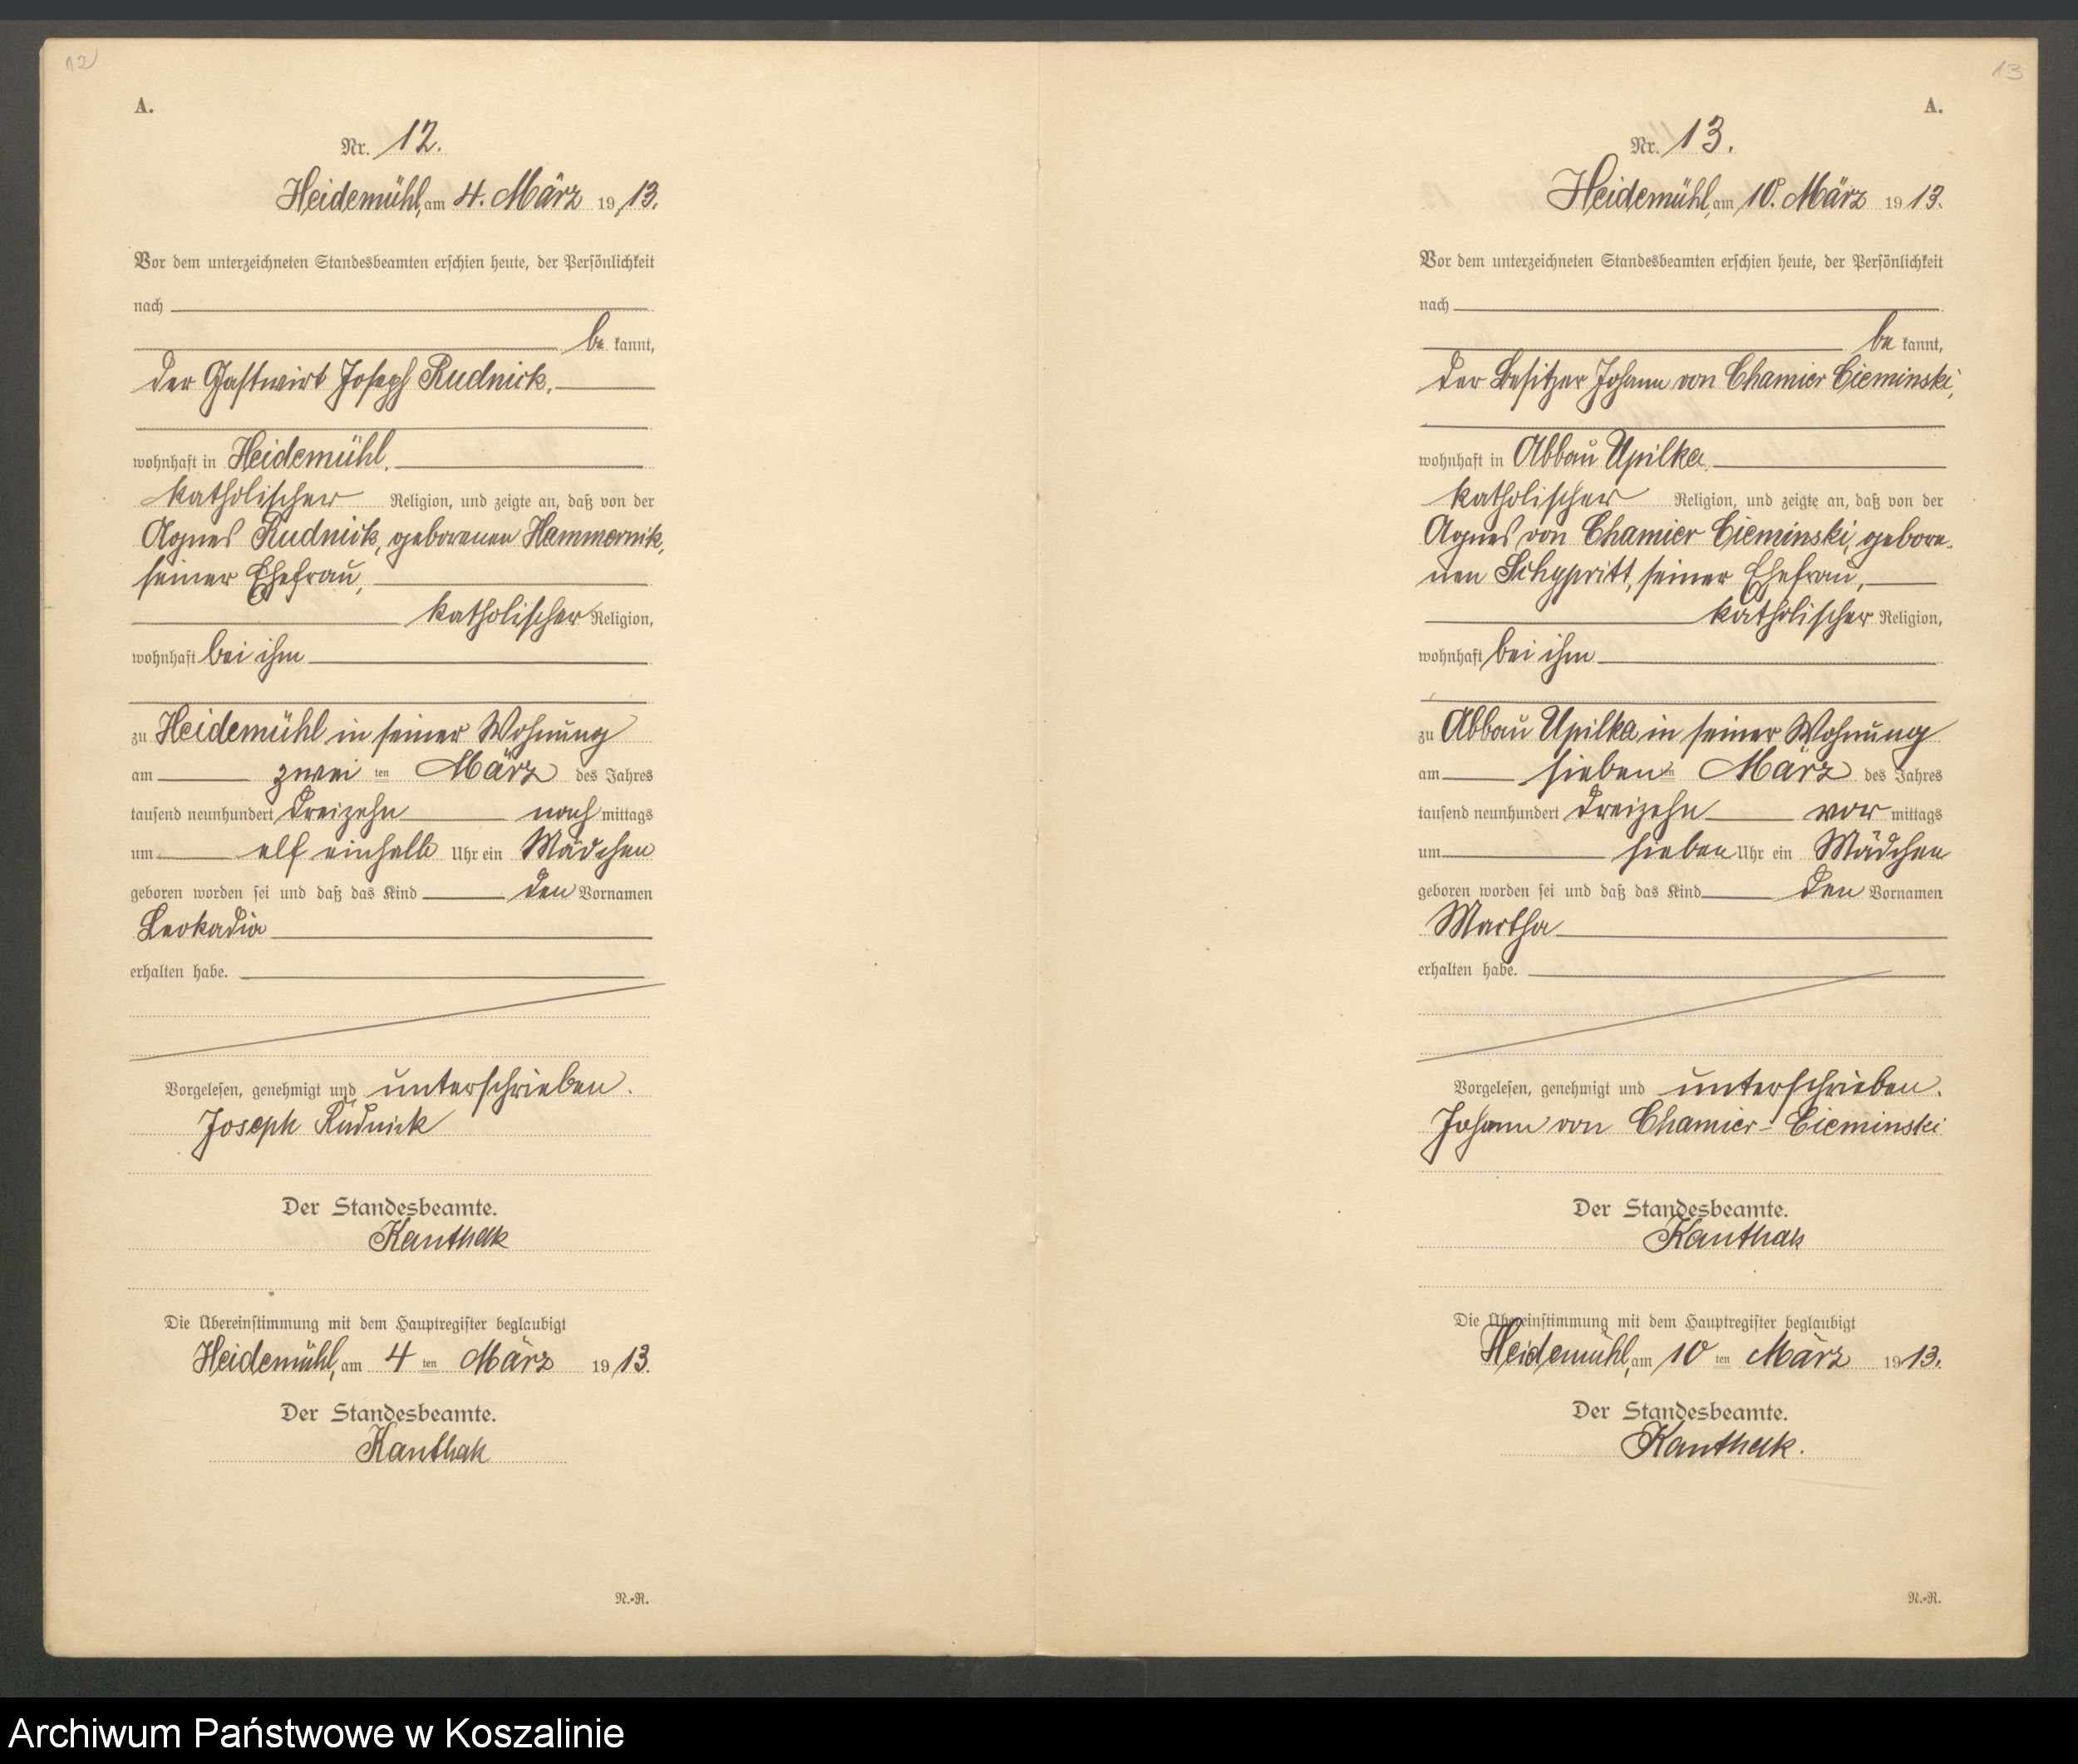 12
A.
Nr. 12.
Heidemühl, am 4. März 1913.
Vor dem unterzeichneten Standesbeamten erschien heute, der Persönlichkeit
nach
be kannt,
der Gastwirt Joseph Rudnick,
wohnhaft in Heidemühl,
katholischer Religion, und zeigte an, daß von der
Agnes Rudnick, geborenen Hammernik,
seiner Ehefrau,
katholischer Religion,
wohnhaft bei ihm
zu Heidemühl in seiner Wohnung
am zwei ten März des Jahres
tausend neunhundert dreizehn nach mittags
um elf einhalb Uhr ein Mädchen
geboren worden sei und daß das Kind den Vornamen
Leokadia
erhalten habe.
Vorgelesen, genehmigt und unterschrieben.
Joseph Rudnick
Der Standesbeamte.
Kanthak
Die Übereinstimmung mit dem Hauptregister beglaubigt
Heidemühl, am 4 ten März 1913.
Der Standesbeamte.
Kanthak
N.-R.
13
A.
Nr. 13.
Heidemühl, am 10. März 1913.
Vor dem unterzeichneten Standesbeamten erschien heute, der Persönlichkeit
nach
be kannt,
der Besitzer Johann von Chamier Cieminski,
wohnhaft in Abbau Upilka
katholischer Religion, und zeigte an, daß von der
Agnes von Chamier Cieminski, gebore-
nen Schypritt, seiner Ehefrau,
katholischer Religion,
wohnhaft bei ihm
zu Abbau Upilka in seiner Wohnung
am sieben ten März des Jahres
tausend neunhundert dreizehn vor mittags
um sieben Uhr ein Mädchen
geboren worden sei und daß das Kind den Vornamen
Martha
erhalten habe.
Vorgelesen, genehmigt und unterschrieben.
Johann von Chamier-Cieminski
Der Standesbeamte.
Kanthak
Die Übereinstimmung mit dem Hauptregister beglaubigt
Heidemühl, am 10 ten März 1913.
Der Standesbeamte.
Kanthak.
N.-R.
Archiwum Państwowe w Koszalinie